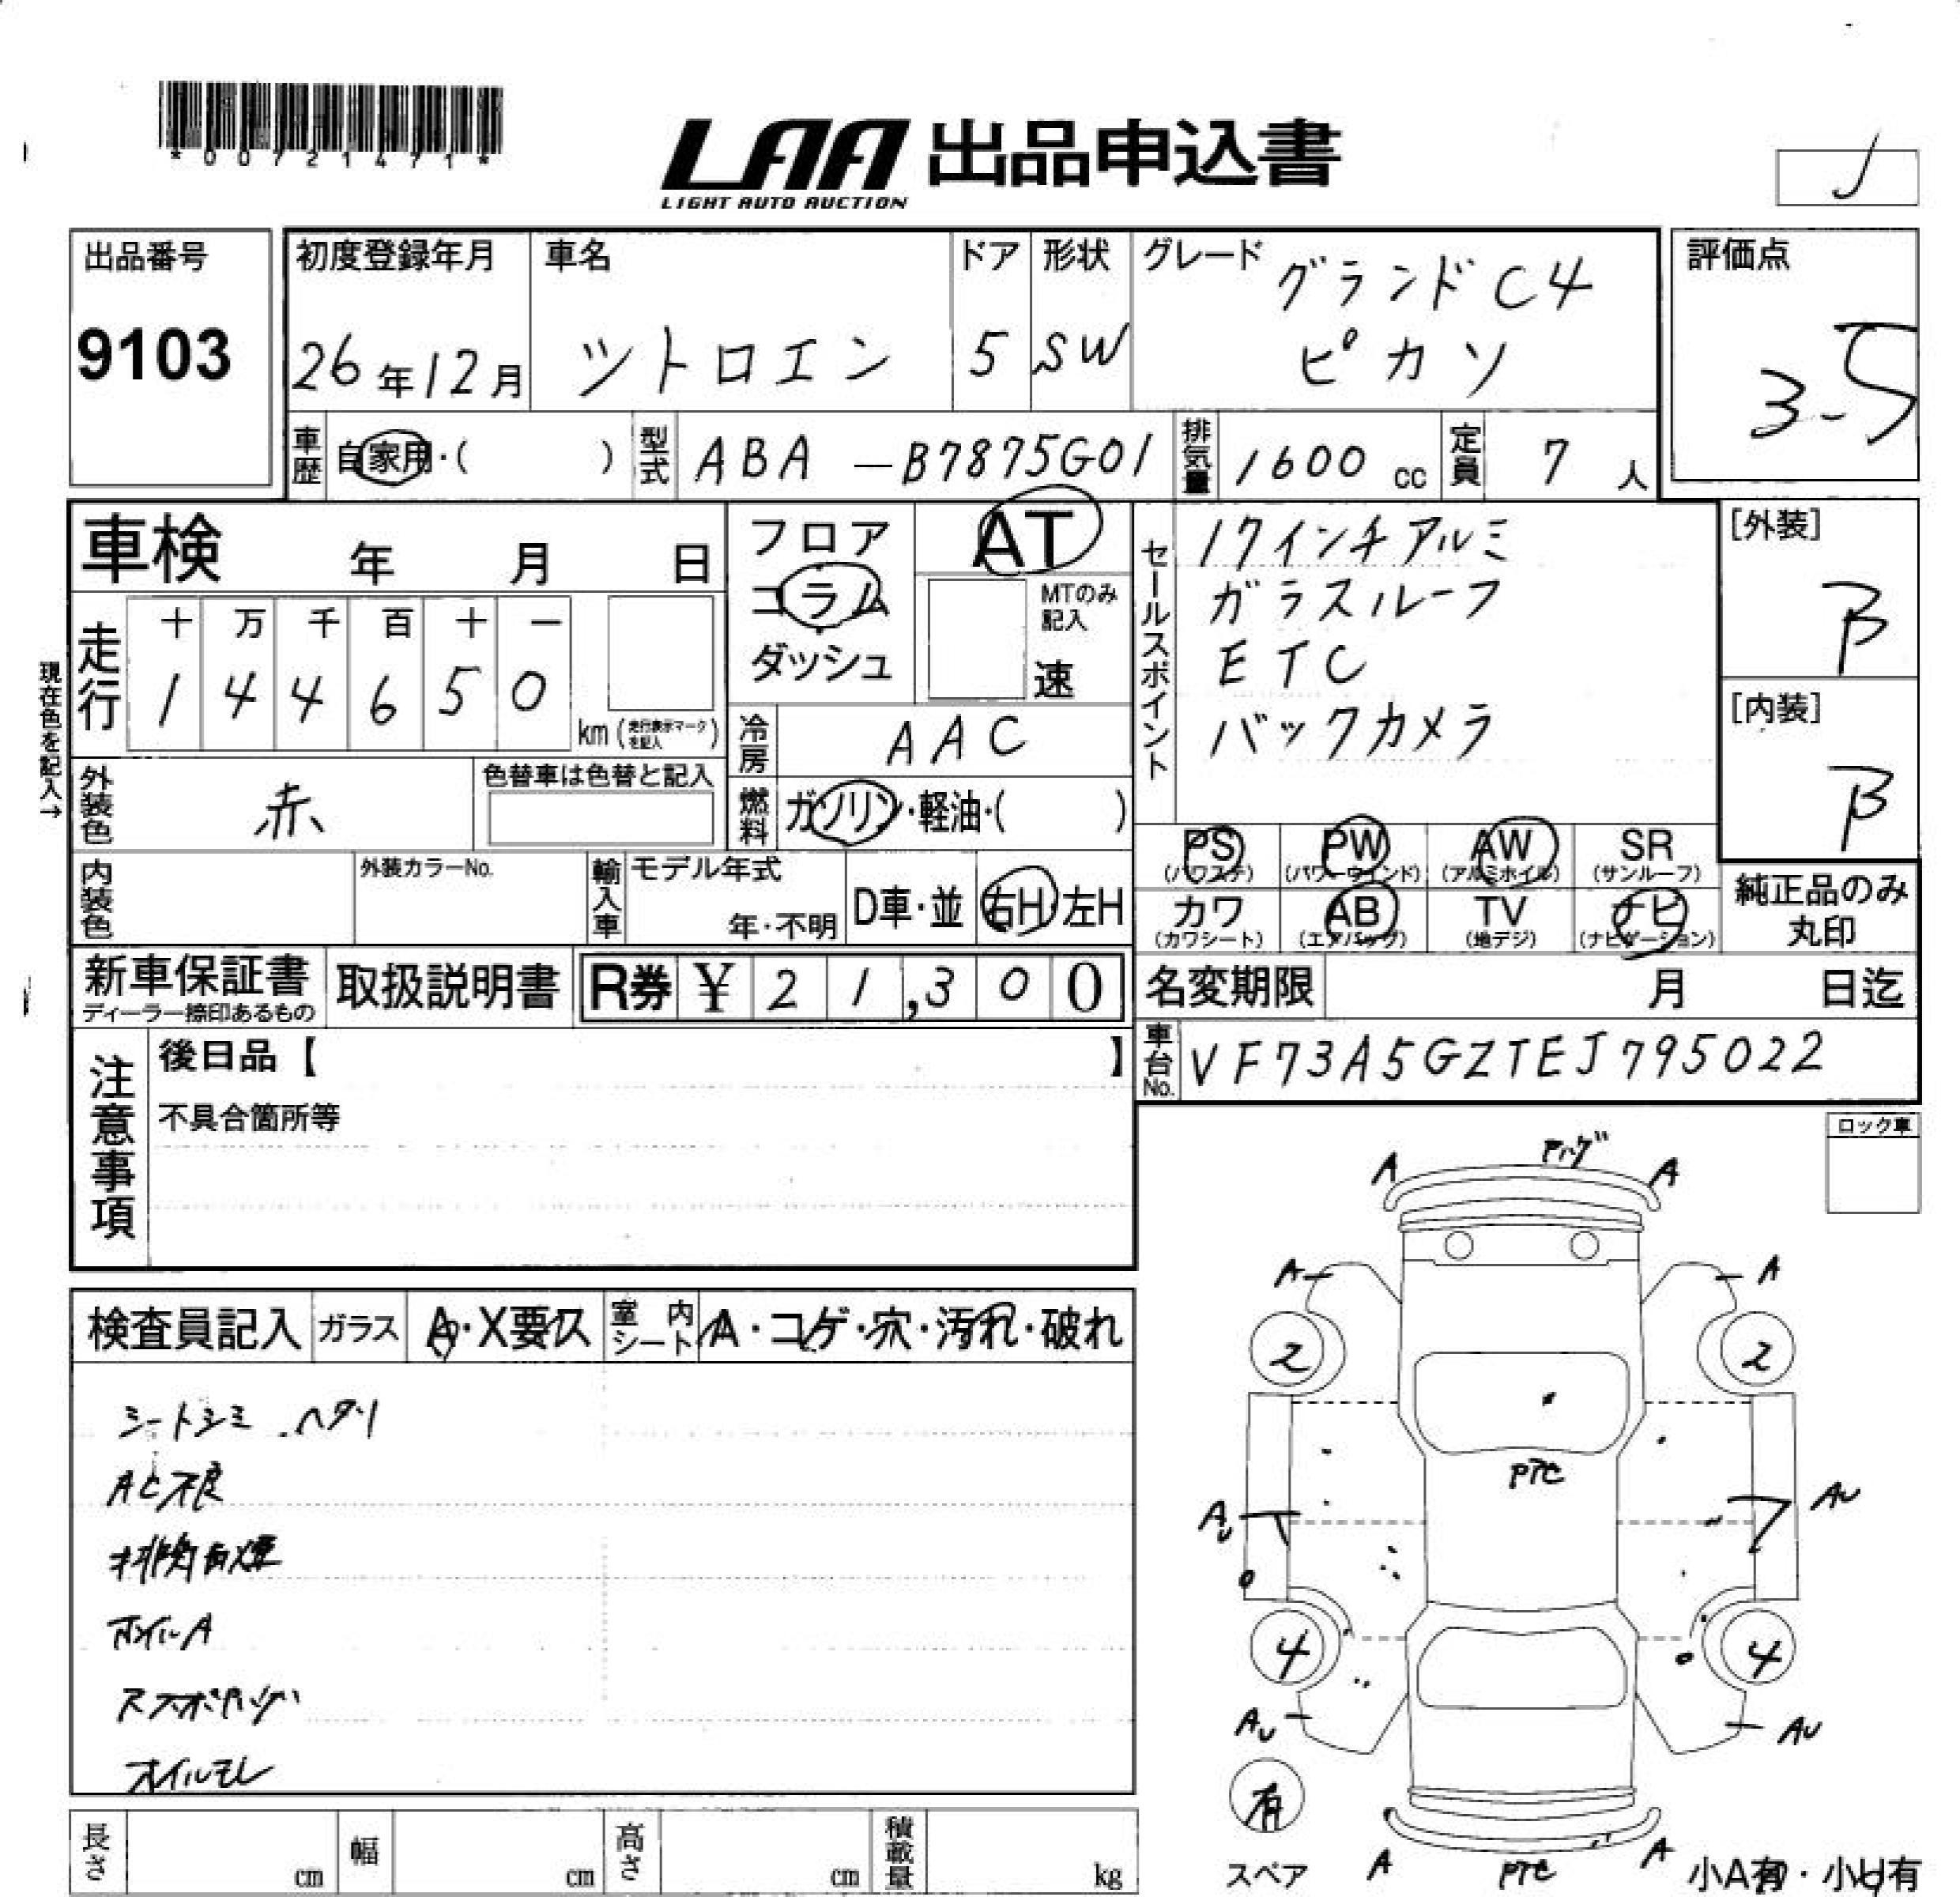 *00721471*
LAA 出品申込書
LIGHT AUTO AUCTION
J
出品番号
9103
初度登録年月
26年12月
車名
ツトロエン
ドア
5
形状
SW
グレード
グランドC4
ピカソ
評価点
3-5
車歴
自家用・( )
型式
ABA-B7875G01
排気量
1600 cc
定員
7人
車検 年 月 日
フロア
コラム
ダッシュ
AT
MTのみ
記入
速
セールスポイント
17インチアルミ
ガラスルーフ
ETC
バックカメラ
[外装]
B
[内装]
B
現在色を記入→
走行
十 万 千 百 十 一
1 4 4 6 5 0
km (走行表示マークを記入)
冷房
AAC
外装色
赤
色替車は色替と記入
燃料
ガソリン・軽油・( )
PS
(パワステ)
PW
(パワーウインド)
AW
(アルミホイル)
SR
(サンルーフ)
カワ
(カワシート)
AB
(エアバッグ)
TV
(地デジ)
ナビ
(ナビゲーション)
純正品のみ
丸印
内装色
外装カラーNo.
輸入車
モデル年式
年・不明
D車・並
右H・左H
新車保証書
ディーラー捺印あるもの
取扱説明書
R券 ¥ 21,300
名変期限 月 日迄
車台No.
VF73A5GZTEJ795022
注意事項
後日品【 】
不具合箇所等
ロック車
検査員記入
ガラス
A・X要ス
室内シート
A・コゲ・穴・汚れ・破れ
シートシミ ヘタリ
AC不良
排気白煙
ホイルA
オイルモレ
A
A
A
A
2
2
PTC
AU
AU
4
4
AU
AU
有
スペア
A
PTC
A
小A有・小U有
長さ cm
幅 cm
高さ cm
積載量 kg